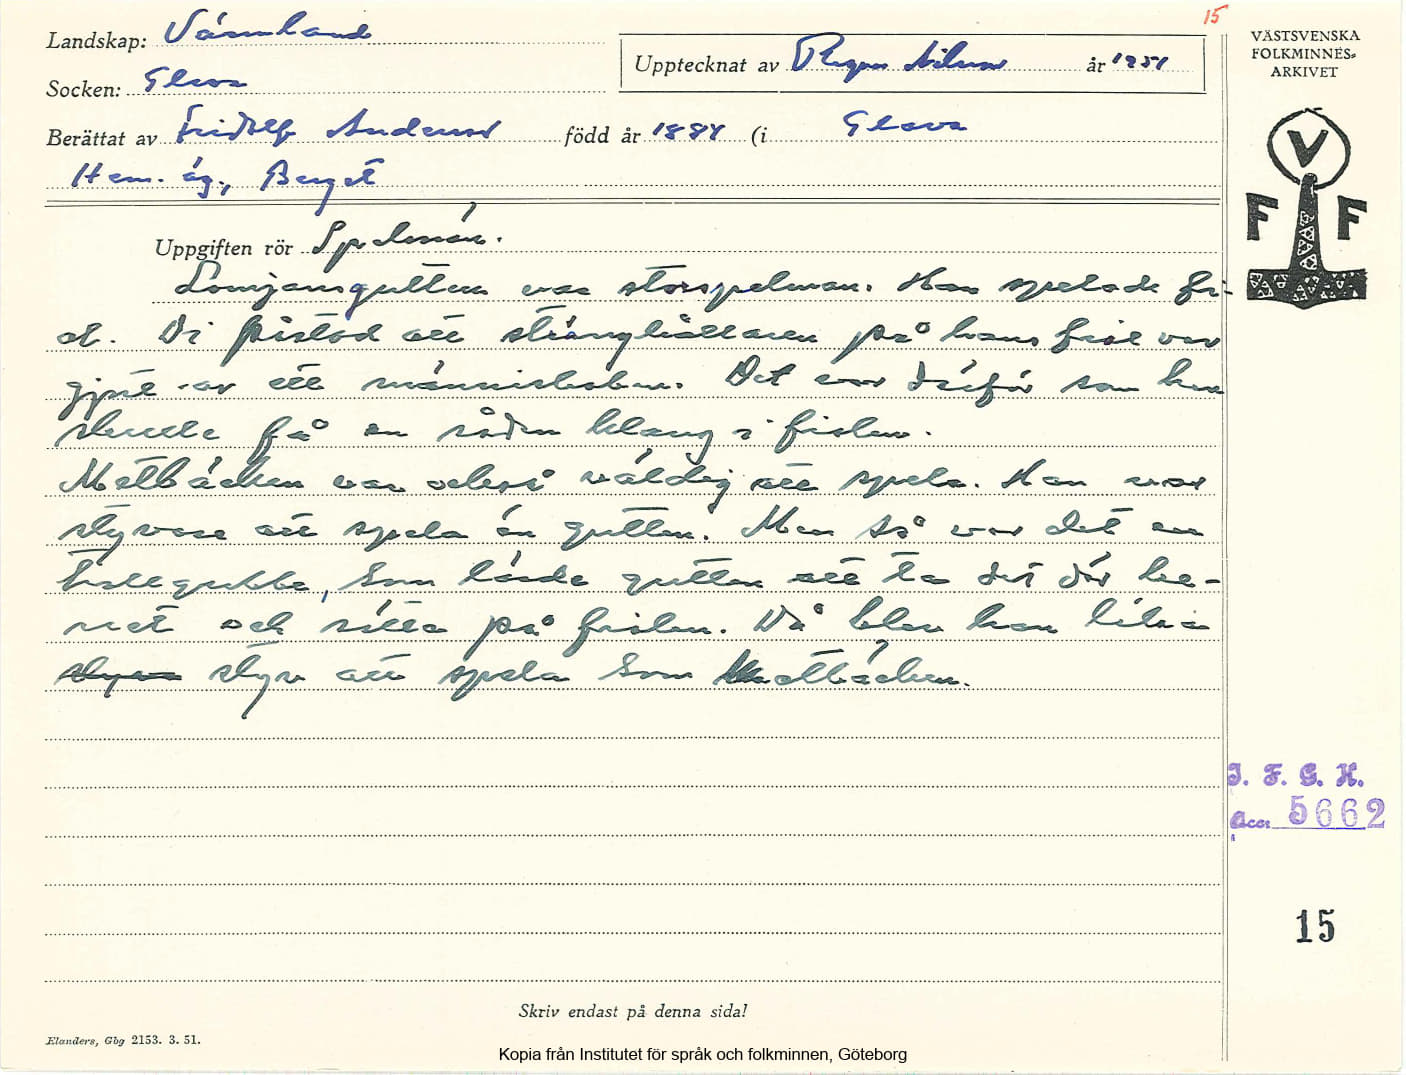 15
Landskap: Värmland
Upptecknat av Ragnar Nilsson år 1951
Socken: Glava
Berättat av Fridolf Anderson född år 1884 (i Glava
Hem.äg., Berget
VÄSTSVENSKA
FOLKMINNES-
ARKIVET
V
F F
Uppgiften rör Spelmän.
Lomjansgutten var storspelman. Han spelade fi-
ol. Di påstod att stränghållaren på hans fiol var
gjort av ett människoben. Det var därför som han
skulle få en sådan klang i fiolen.
Matbäcken var också väldig att spela. Han var
styvare att spela än gutten. Men så var det en
trollgubbe, som lärde gutten att ta det där be-
net och sätta på fiolen. Då blev han lika
styv att spela som Matbäcken.
I. F. G. H.
Acc. 5662
15
Skriv endast på denna sida!
Elanders, Gbg 2153. 3. 51.
Kopia från Institutet för språk och folkminnen, Göteborg